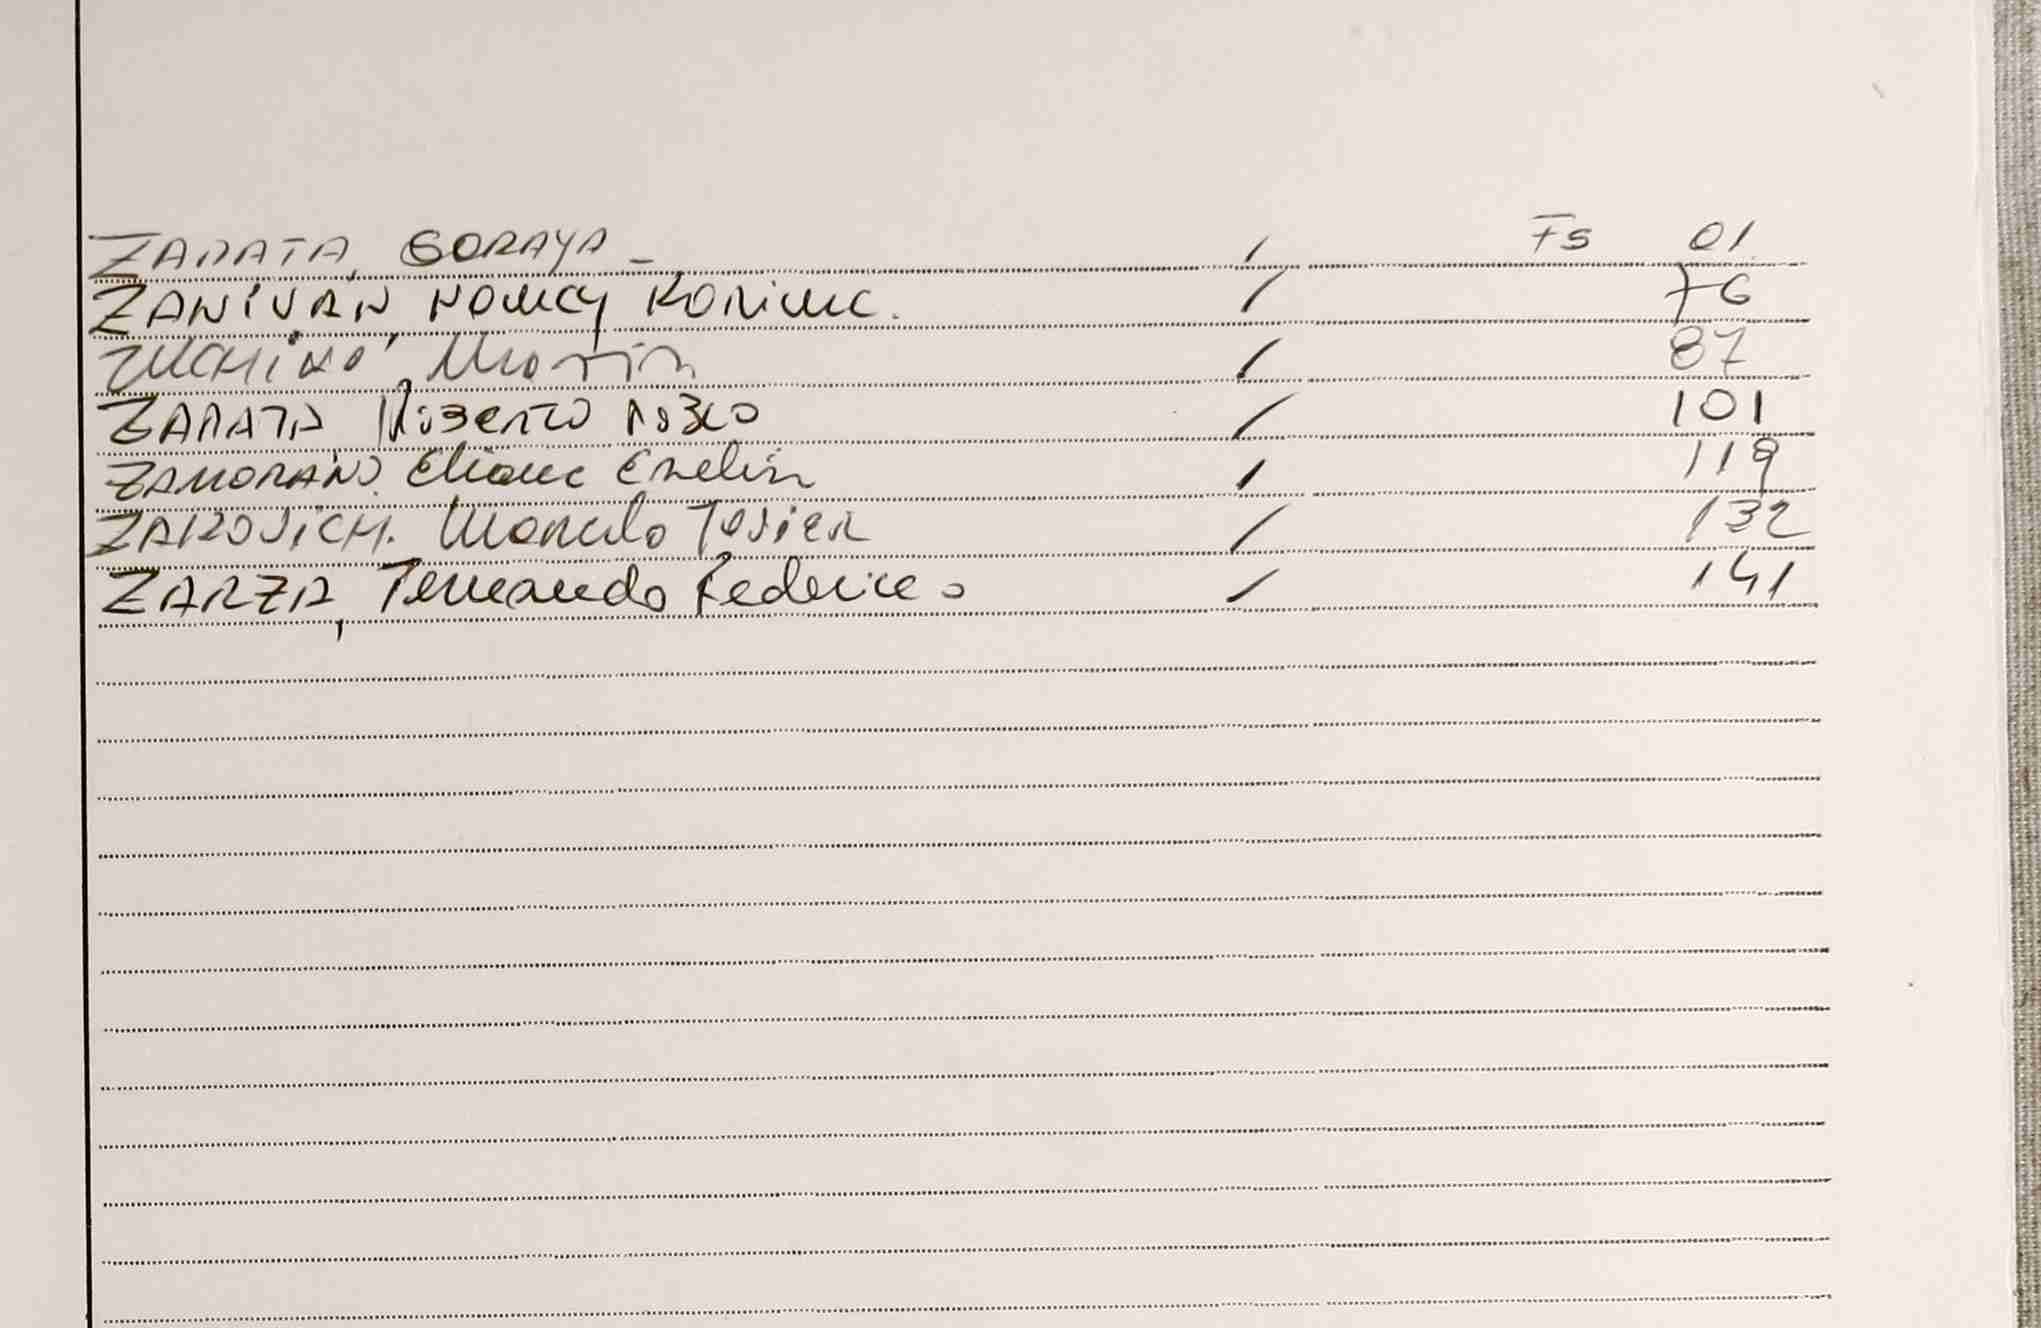 ZARATA, SORAYA - / Fs 01
ZANIVAN NANCY KARINA. / 76
ZUCHINO, Martin / 87
ZARATA Roberto PABLO / 101
ZAMORANO. Eliana Evelin / 119
ZAKOVICH. Marcelo Javier / 132
ZARZA, Fernando Federico / 141